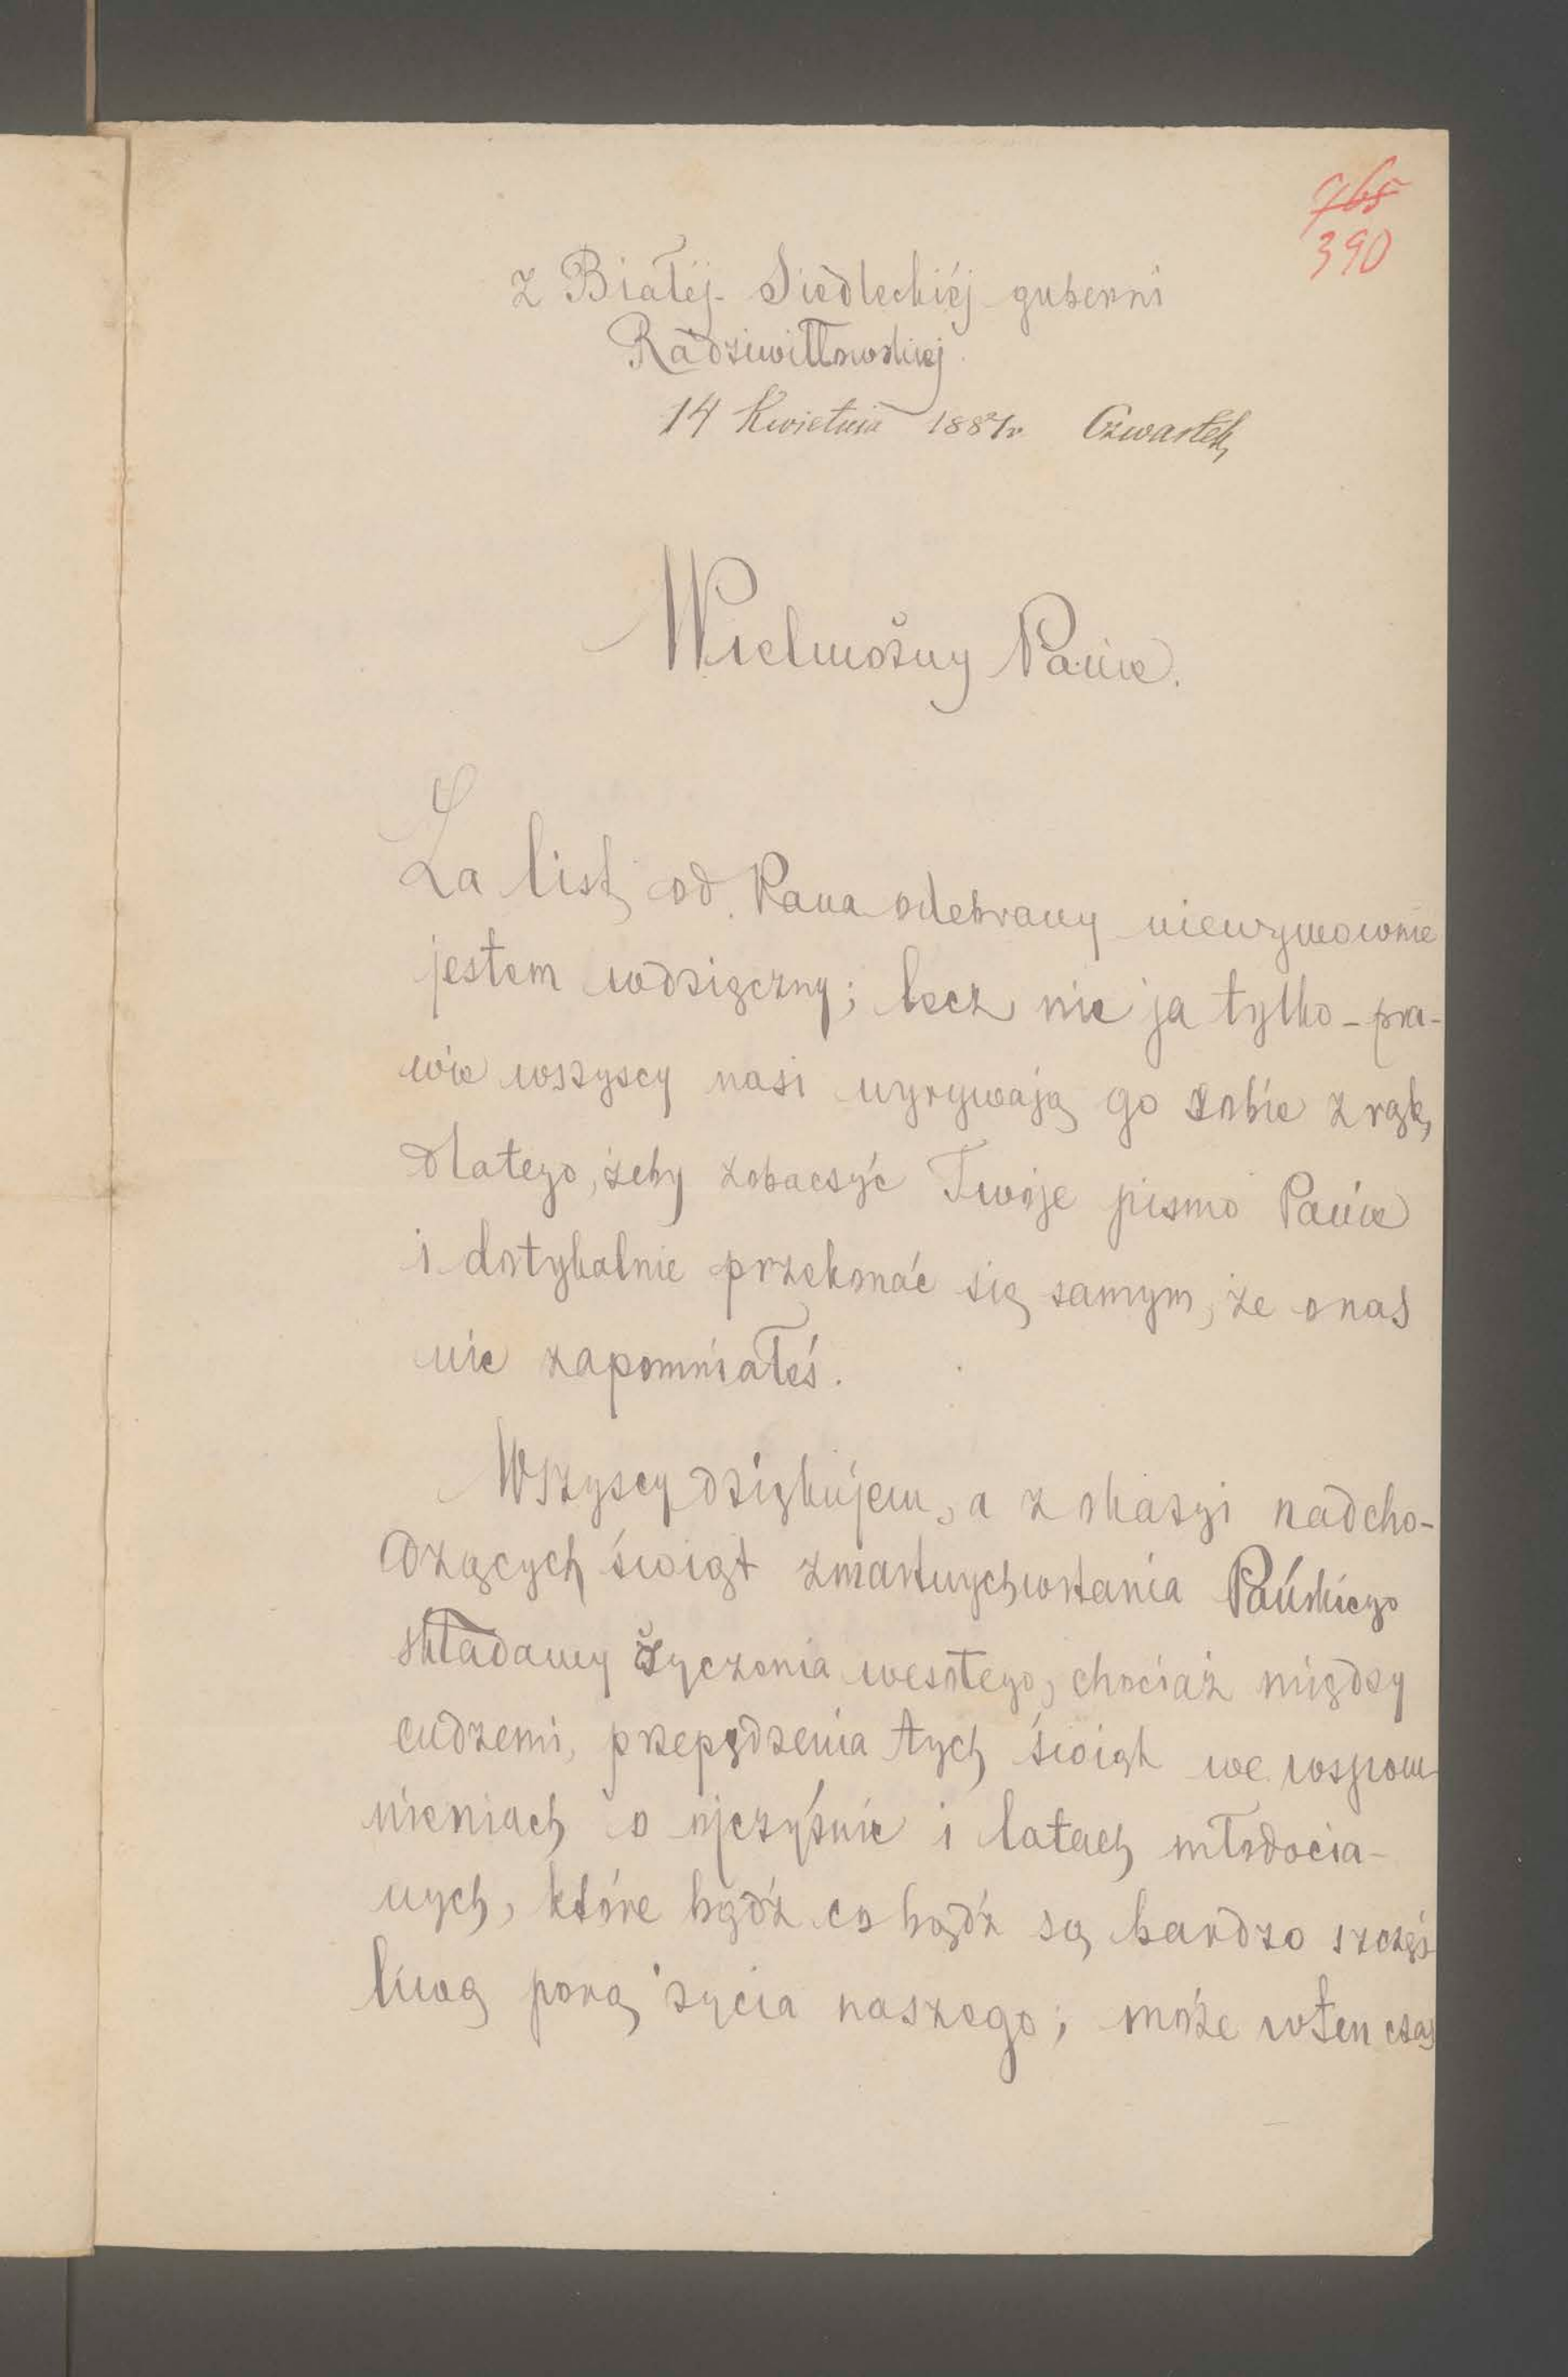 765
390
z Białéj- Siedleckiéj guberni
Radziwiłłowskiej
14 Kwietnia 1881r. Czwartek,
Wielmożny Panie.
Za list od Pana odebrany niewymownie
jestem wdzięczny; lecz nie ja tylko - pra-
wie wszyscy nasi wyrywają go sobie z rąk,
dlatego, żeby zobaczyć Twoje pismo Panie
i dotykalnie przekonać się samym, że o nas
nie zapomniałeś.
Wszyscy dziękujem, a z okazyi nadcho-
dzących świąt zmartwychwstania Pańskiego
składamy życzenia wesołego, chociaż między
cudzemi, przepędzenia tych świąt we wspom-
nieniach o ojczyźnie i latach młodocia-
nych, które bądź co bądź są bardzo szczęś
liwą porą życia naszego; może wten czas